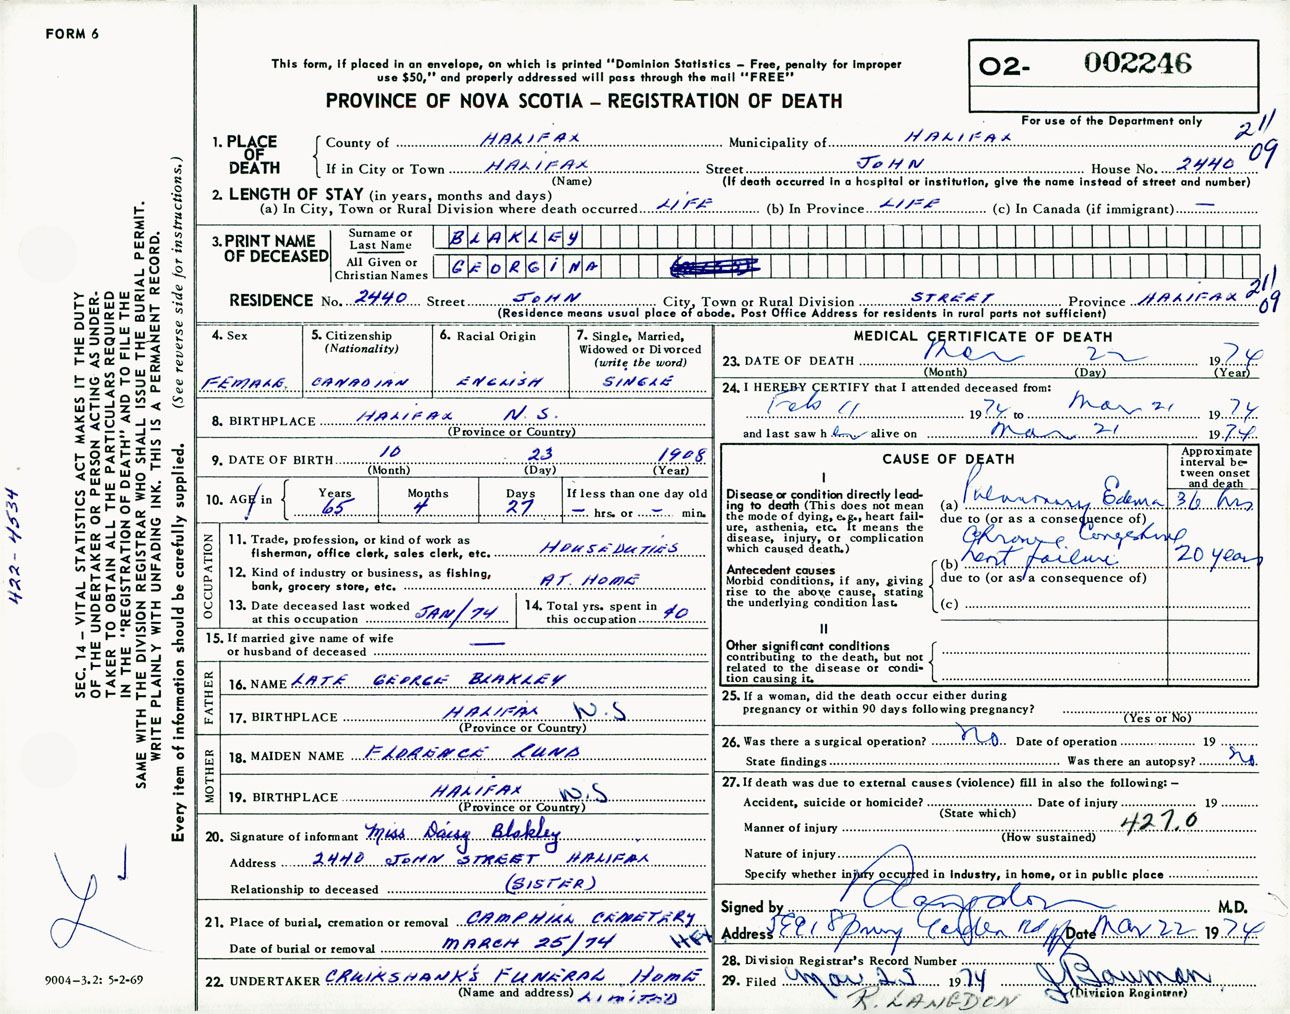 FORM 6
This form, if placed in an envelope, on which is printed "Dominion Statistics – Free, penalty for improper
use $50," and properly addressed will pass through the mail "FREE"
PROVINCE OF NOVA SCOTIA – REGISTRATION OF DEATH
O2- 002246
For use of the Department only
211
09
1. PLACE OF DEATH
County of HALIFAX Municipality of HALIFAX
If in City or Town HALIFAX Street JOHN House No. 2440
(Name) (If death occurred in a hospital or institution, give the name instead of street and number)
2. LENGTH OF STAY (in years, months and days)
(a) In City, Town or Rural Division where death occurred LIFE (b) In Province LIFE (c) In Canada (if immigrant) —
3. PRINT NAME OF DECEASED
Surname or Last Name BLAKLEY
All Given or Christian Names GEORGINA
RESIDENCE No. 2440 Street JOHN City, Town or Rural Division STREET Province HALIFAX
211
09
(Residence means usual place of abode. Post Office Address for residents in rural parts not sufficient)
4. Sex
FEMALE
5. Citizenship
(Nationality)
CANADIAN
6. Racial Origin
ENGLISH
7. Single, Married,
Widowed or Divorced
(write the word)
SINGLE
8. BIRTHPLACE HALIFAX N.S.
(Province or Country)
9. DATE OF BIRTH 10 23 1908
(Month) (Day) (Year)
10. AGE in
Years 65
Months 4
Days 27
If less than one day old
– hrs. or – min.
OCCUPATION
11. Trade, profession, or kind of work as
fisherman, office clerk, sales clerk, etc. HOUSEDUTIES
12. Kind of industry or business, as fishing,
bank, grocery store, etc. AT. HOME
13. Date deceased last worked
at this occupation JAN/74
14. Total yrs. spent in
this occupation 40
15. If married give name of wife
or husband of deceased —
FATHER
16. NAME LATE GEORGE BLAKLEY
17. BIRTHPLACE HALIFAX N.S
(Province or Country)
MOTHER
18. MAIDEN NAME FLORENCE LUND
19. BIRTHPLACE HALIFAX N.S
(Province or Country)
20. Signature of informant Miss Daisy Blakley
Address 2440 JOHN STREET HALIFAX
Relationship to deceased (SISTER)
21. Place of burial, cremation or removal CAMPHILL CEMETERY
Date of burial or removal MARCH 25/74 HFX
22. UNDERTAKER CRUIKSHANK'S FUNERAL HOME
(Name and address) LIMITED
MEDICAL CERTIFICATE OF DEATH
23. DATE OF DEATH Mar 22 1974
(Month) (Day) (Year)
24. I HEREBY CERTIFY that I attended deceased from:
Feb 11 1974 to Mar 21 1974
and last saw h alive on Mar 21 1974
CAUSE OF DEATH
Approximate
interval be-
tween onset
and death
I
Disease or condition directly lead-
ing to death (This does not mean
the mode of dying, e.g., heart fail-
ure, asthenia, etc. It means the
disease, injury, or complication
which caused death.)
(a) Pulmonary Edema 36 hrs
due to (or as a consequence of)
Chronic Congestive
(b) heart failure 20 years
due to (or as a consequence of)
(c)
Antecedent causes
Morbid conditions, if any, giving
rise to the above cause, stating
the underlying condition last.
II
Other significant conditions
contributing to the death, but not
related to the disease or condi-
tion causing it.
25. If a woman, did the death occur either during
pregnancy or within 90 days following pregnancy?
(Yes or No)
26. Was there a surgical operation? No Date of operation 19
State findings Was there an autopsy? No.
27. If death was due to external causes (violence) fill in also the following: –
Accident, suicide or homicide? Date of injury 19
(State which)
Manner of injury 427.0
(How sustained)
Nature of injury
Specify whether injury occurred in industry, in home, or in public place
Signed by Langdon M.D.
Address 5991 Spring Garden Rd Hfx Date Mar 22 1974
28. Division Registrar's Record Number
29. Filed Mar 25 1974 J Bauman
(Division Registrar)
R. LANGDON
SEC. 14 – VITAL STATISTICS ACT MAKES IT THE DUTY
OF THE UNDERTAKER OR PERSON ACTING AS UNDER-
TAKER TO OBTAIN ALL THE PARTICULARS REQUIRED
IN THE "REGISTRATION OF DEATH" AND TO FILE THE
SAME WITH THE DIVISION REGISTRAR WHO SHALL ISSUE THE BURIAL PERMIT.
WRITE PLAINLY WITH UNFADING INK. THIS IS A PERMANENT RECORD.
Every item of information should be carefully supplied. (See reverse side for instructions.)
422-4534
9004-3.2: 5-2-69